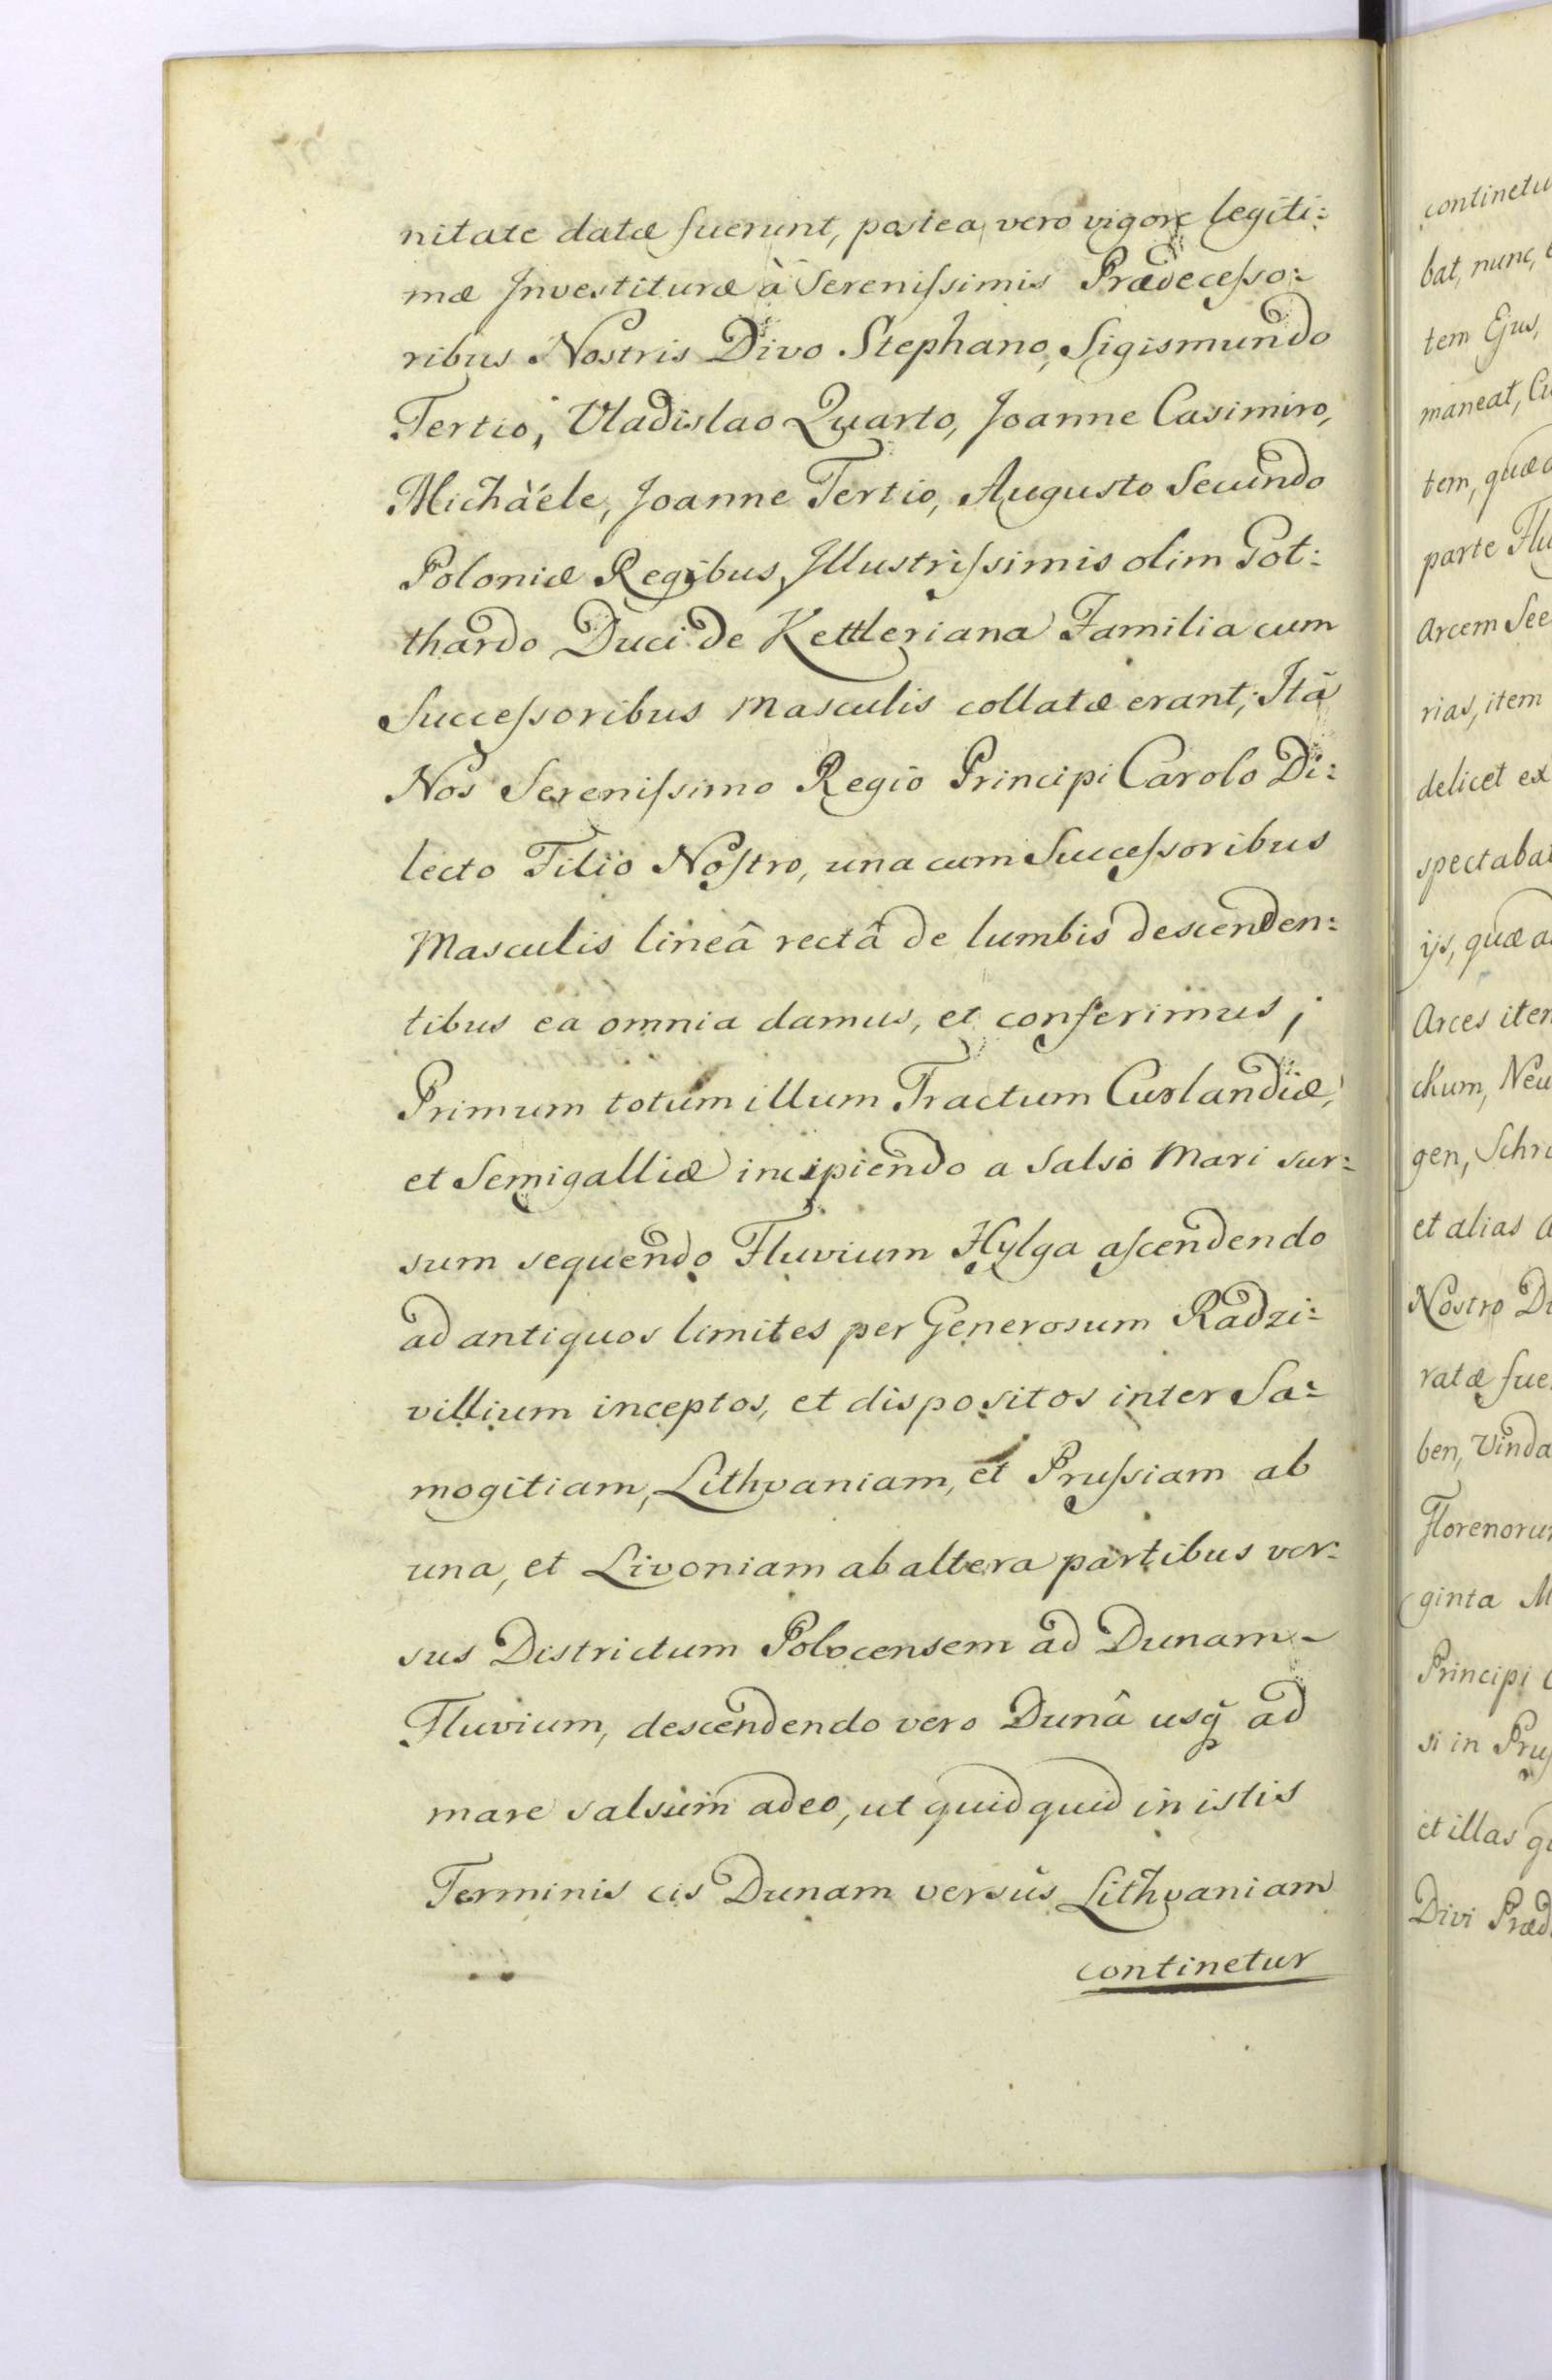 nitate datæ fuerunt, postea vero vigore legiti:
mæ Investituræ à Sereniſsimis Prædeceſso:
ribus Nostris Divo Stephano, Sigismundo
Tertio, Vladislao Quarto, Joanne Casimiro,
Michàéle, Joanne Tertio, Augusto Secundo
Poloniæ Regibus, Illustriſsimis olim Got:
thardo Duci de Kettleriana Familia cum
Succeſsoribus Masculis collatæ erant; Itâ
Nos Sereniſsimo Regio Principi Carolo Di:
lecto Filio Noſtro, una cum Succeſsoribus
Masculis lineâ rectâ de lumbis descenden:
tibus ea omnia damus, et conferimus;
Primum totum illum Tractum Curlandiæ,
et Semigalliæ incipiendo a Salso Mari sur:
sum sequendo Fluvium Hylga aſcendendo
ad antiquos limites per Generosum Radzi:
villium inceptos, et dispositos inter Sa:
mogitiam, Lithvaniam, et Pruſsiam ab
una, et Livoniam ab altera partibus ver:
sus Districtum Polocensem ad Dunam
Fluvium, descendendo vero Dunâ usq̃ ad
mare salsum adeo, ut quidquid in istis
Terminis cis Dunam versùs Lithvaniam
continetur
continetu
bat, nunc,
tem Ejus,
maneat,
tem,
parte
Arcem See
rias, item
delicet ex
spectabat
ijs, quæ a
Arces iter
ckum, Neu
gen, Schr
et alias a
Nostro D
ratæ fue
ben, Vinda
Florenoru
ginta M
Principi
si in Pruſ
et illas
Divi Præd